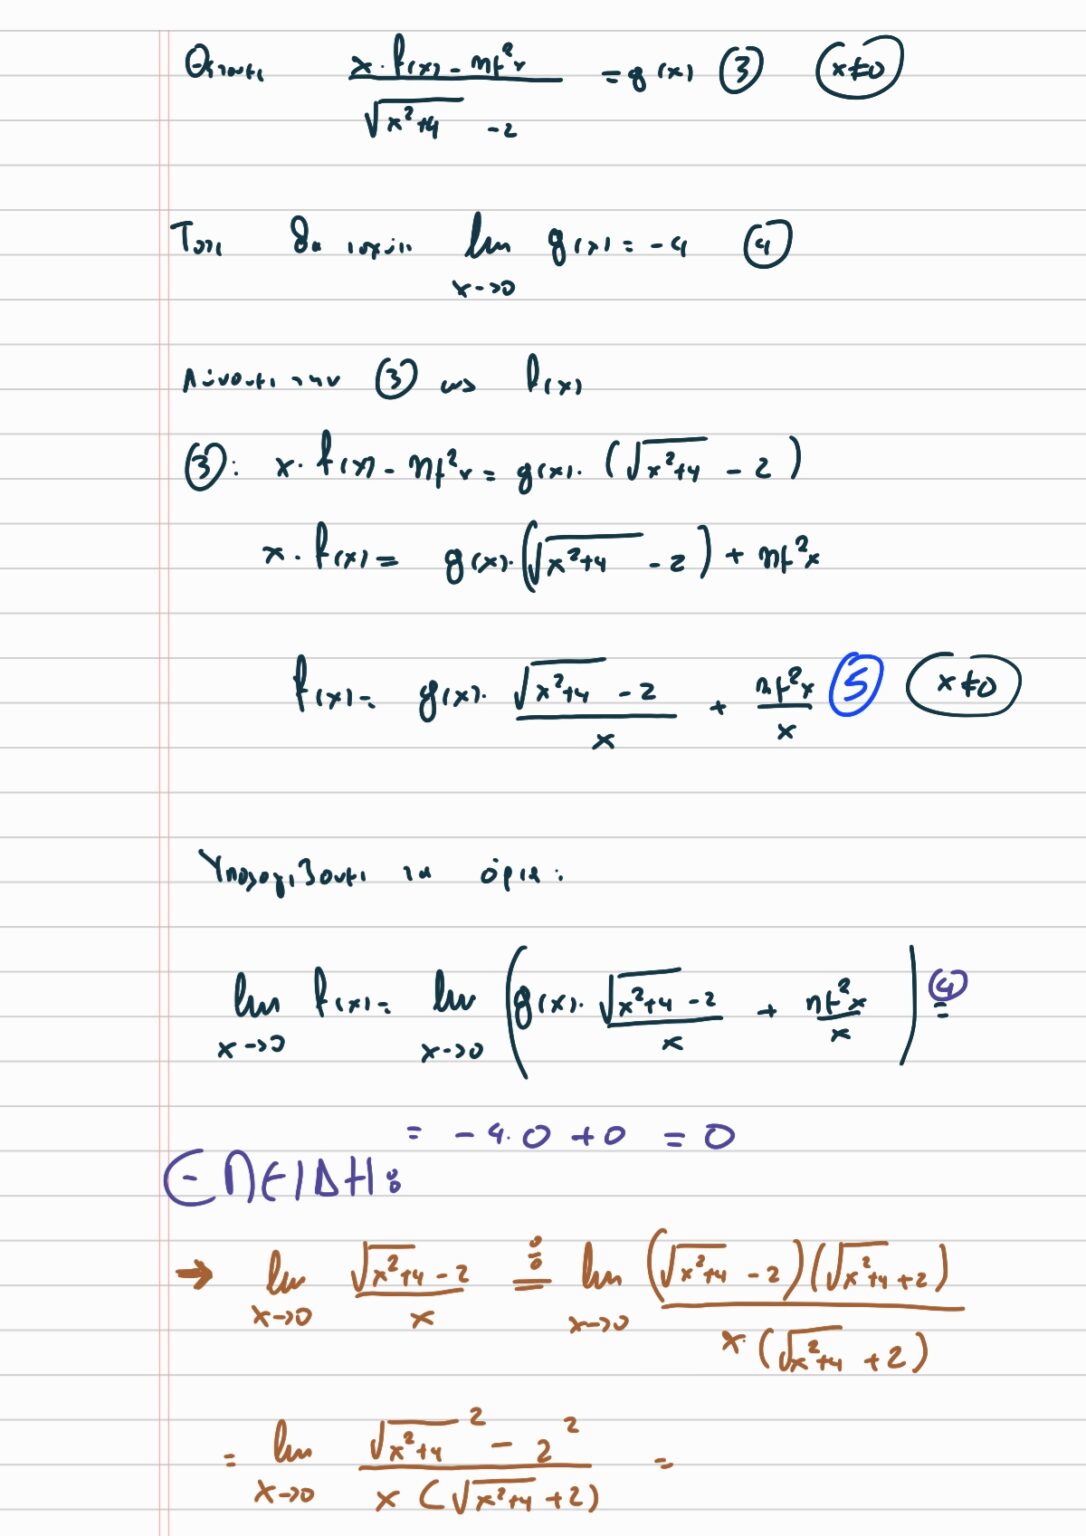 Θέτουμε (x·f(x) - ημ²x)/(√(x²+4) - 2) = g(x) ③ (x≠0)
Τότε θα ισχύει lim_{x->0} g(x) = -4 ④
Λύνουμε την ③ ως f(x)
③: x·f(x) - ημ²x = g(x)·(√(x²+4) - 2)
x·f(x) = g(x)·(√(x²+4) - 2) + ημ²x
f(x) = g(x)·(√(x²+4) - 2)/x + ημ²x/x ⑤ (x≠0)
Υπολογίζουμε τα όρια:
lim_{x->0} f(x) = lim_{x->0} (g(x)·(√(x²+4) - 2)/x + ημ²x/x) =④
= -4·0 + 0 = 0
ΕΠΕΙΔΗ:
→ lim_{x->0} (√(x²+4) - 2)/x =0/0 lim_{x->0} ((√(x²+4) - 2)(√(x²+4) + 2))/(x·(√(x²+4) + 2))
= lim_{x->0} (√(x²+4)² - 2²)/(x(√(x²+4) + 2)) =